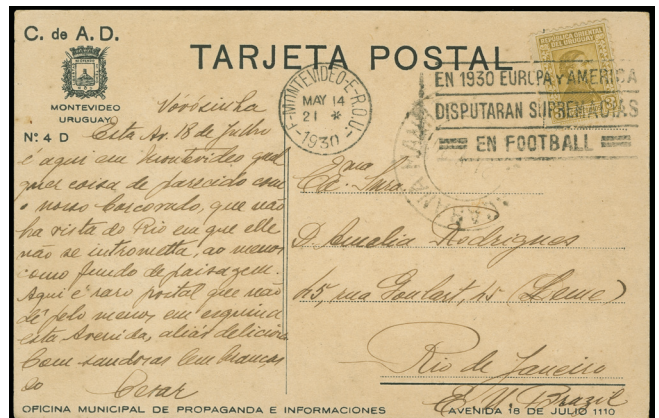 C. de A. D.
MONTEVIDEO
URUGUAY
Nº 4 D
TARJETA POSTAL
MONTEVIDEO-E-R.O.U.
MAY 14
21 *
1930
REPÚBLICA ORIENTAL
DEL URUGUAY
EN 1930 EUROPA Y AMERICA
DISPUTARAN SUPREMACIAS
EN FOOTBALL
Vóvósinha
Esta Av. 18 de Julho
é aqui em Montevideo qual
quer coisa de parecido com
o nosso Corcovado, que não
ha vista do Rio em que elle
não se intrometta, ao menos
como fundo de paisagem.
Aqui é raro postal que não
dê pelo menos em esquina
esta Avenida, aliás deliciosa
Com saudosas lembranças
do Cesar
Exma. Snra.
D. Amelia Rodrigues
45, rua Goulart, 45 (Leme)
Rio de Janeiro
E. U. Brazil
OFICINA MUNICIPAL DE PROPAGANDA E INFORMACIONES
AVENIDA 18 DE JULIO 1110